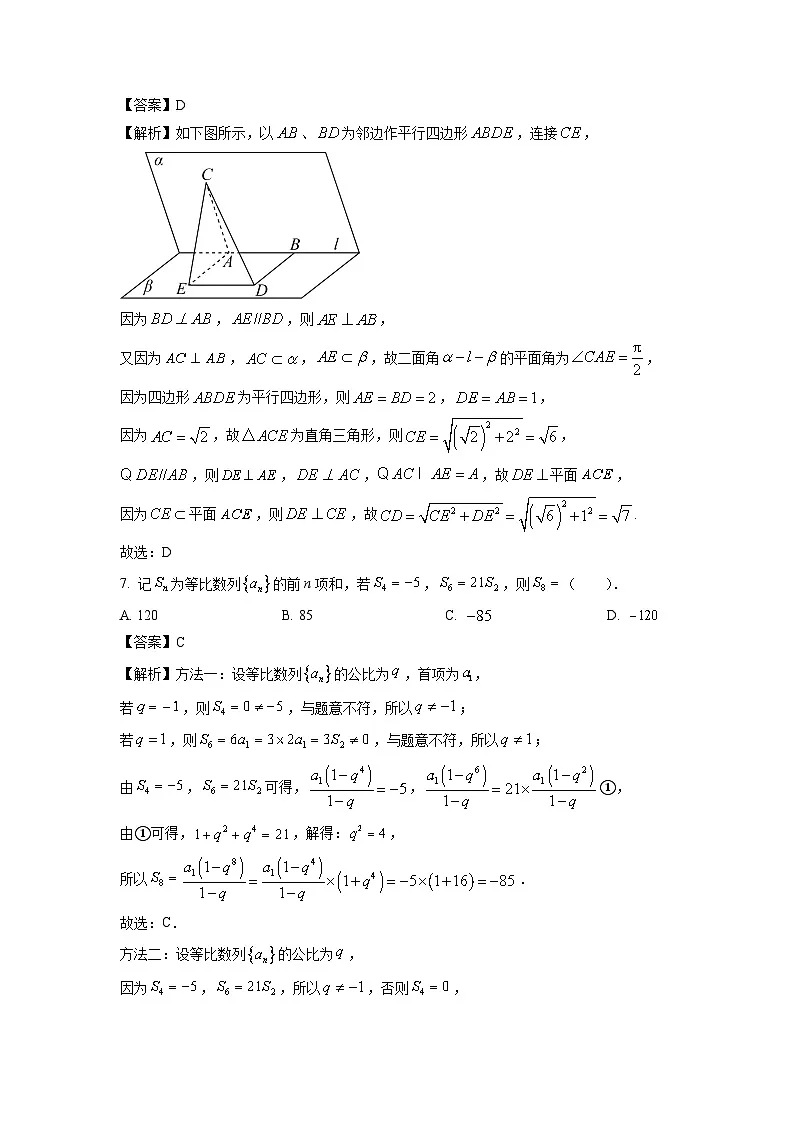 【答案】D
【解析】如下图所示，以 AB 、 BD 为邻边作平行四边形 ABDE ，连接 CE ，
α
C
B
l
A
β
E
D
因为 BD ⊥ AB ， AE//BD ，则 AE ⊥ AB，
又因为 AC ⊥ AB ， AC ⊂ α ， AE ⊂ β ，故二面角 α − l − β 的平面角为 ∠CAE = π/2 ，
因为四边形 ABDE 为平行四边形，则 AE = BD = 2 ， DE = AB = 1，
因为 AC = √2 ，故 △ACE 为直角三角形，则 CE = √((√2)² + 2²) = √6 ，
Q DE//AB ，则 DE ⊥ AE ， DE ⊥ AC ，Q AC I AE = A ，故 DE ⊥ 平面 ACE ，
因为 CE ⊂ 平面 ACE ，则 DE ⊥ CE ，故 CD = √(CE² + DE²) = √((√6)² + 1²) = √7 .
故选：D
7. 记 Sₙ 为等比数列 {aₙ} 的前 n 项和，若 S₄ = −5 ， S₆ = 21S₂ ，则 S₈ = （ ）.
A. 120 B. 85 C. −85 D. −120
【答案】C
【解析】方法一：设等比数列 {aₙ} 的公比为 q ，首项为 a₁，
若 q = −1 ，则 S₄ = 0 ≠ −5 ，与题意不符，所以 q ≠ −1；
若 q = 1 ，则 S₆ = 6a₁ = 3 × 2a₁ = 3S₂ ≠ 0 ，与题意不符，所以 q ≠ 1；
由 S₄ = −5 ， S₆ = 21S₂ 可得， a₁(1−q⁴)/(1−q) = −5 ， a₁(1−q⁶)/(1−q) = 21 × a₁(1−q²)/(1−q) ①，
由①可得，1 + q² + q⁴ = 21 ，解得：q² = 4 ，
所以 S₈ = a₁(1−q⁸)/(1−q) = a₁(1−q⁴)/(1−q) × (1+q⁴) = −5 × (1+16) = −85 .
故选：C.
方法二：设等比数列 {aₙ} 的公比为 q ，
因为 S₄ = −5 ， S₆ = 21S₂ ，所以 q ≠ −1 ，否则 S₄ = 0 ，